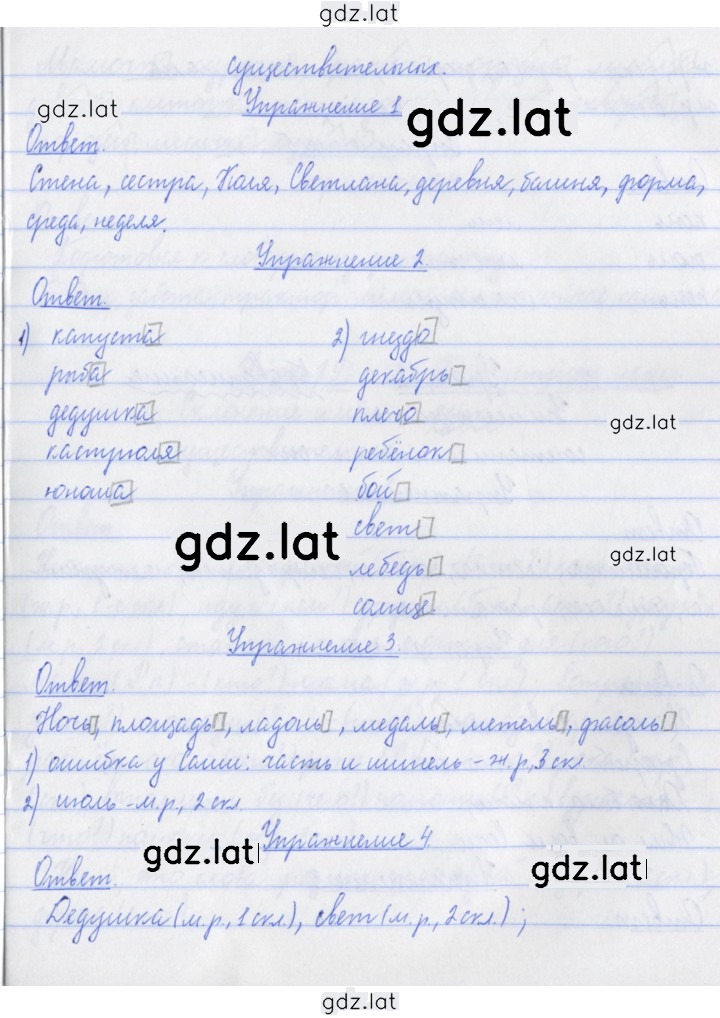 gdz.lat
существительных.
Упражнение 1
gdz.lat
gdz.lat
Ответ.
Стена, сестра, Коля, Светлана, деревня, башня, форма,
среда, неделя.
Упражнение 2.
Ответ.
1) капуста 2) гнездо
рыба декабрь
дедушка плечо
gdz.lat
кастрюля ребёнок
юноша бой
свет
gdz.lat
gdz.lat
лебедь
солнце
Упражнение 3.
Ответ.
Ночь, площадь, ладонь, медаль, метель, фасоль
1) ошибка у Саши: часть и шинель - ж.р, 3 скл
2) июль - м.р., 2 скл
Упражнение 4.
gdz.lat
gdz.lat
Ответ.
Дедушка (м.р., 1 скл.), свет (м.р., 2 скл.);
gdz.lat